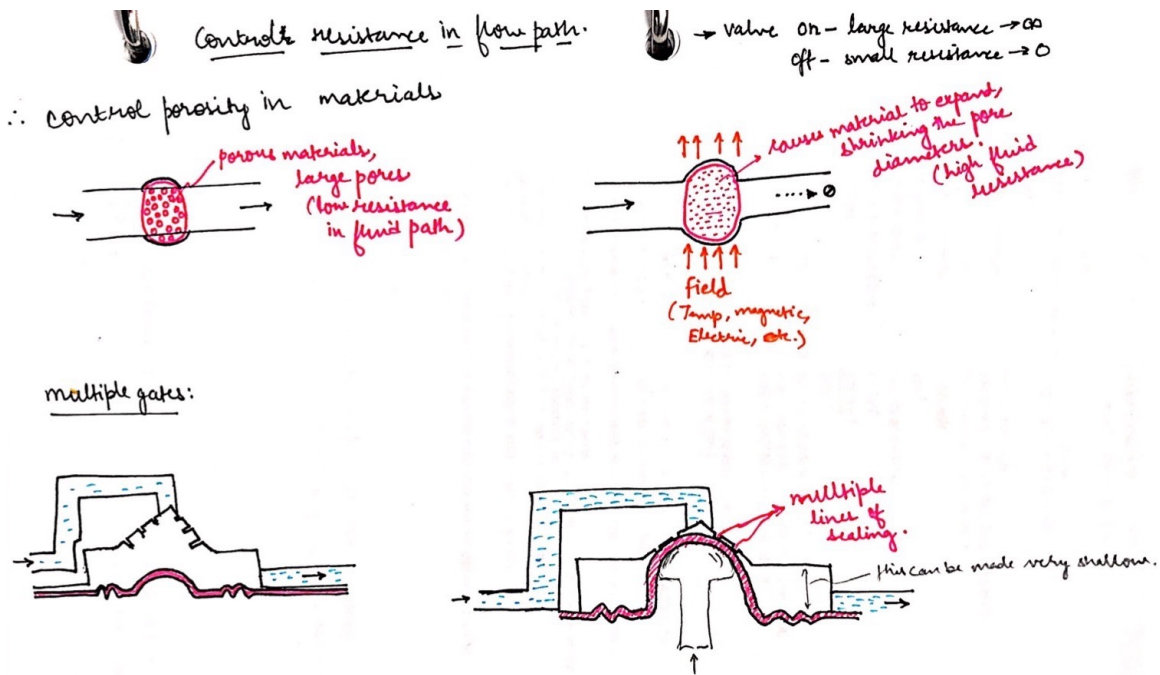 Controls resistance in flow path.
→ valve on – large resistance → ∞
off – small resistance → 0
∴ control porosity in materials
porous materials,
large pores
(low resistance
in fluid path)
causes material to expand,
shrinking the pore
diameters.
(high fluid
resistance)
field
(Temp, magnetic,
Electric, etc.)
multiple gates:
mulltiple
lines of
sealing.
this can be made very shallow.